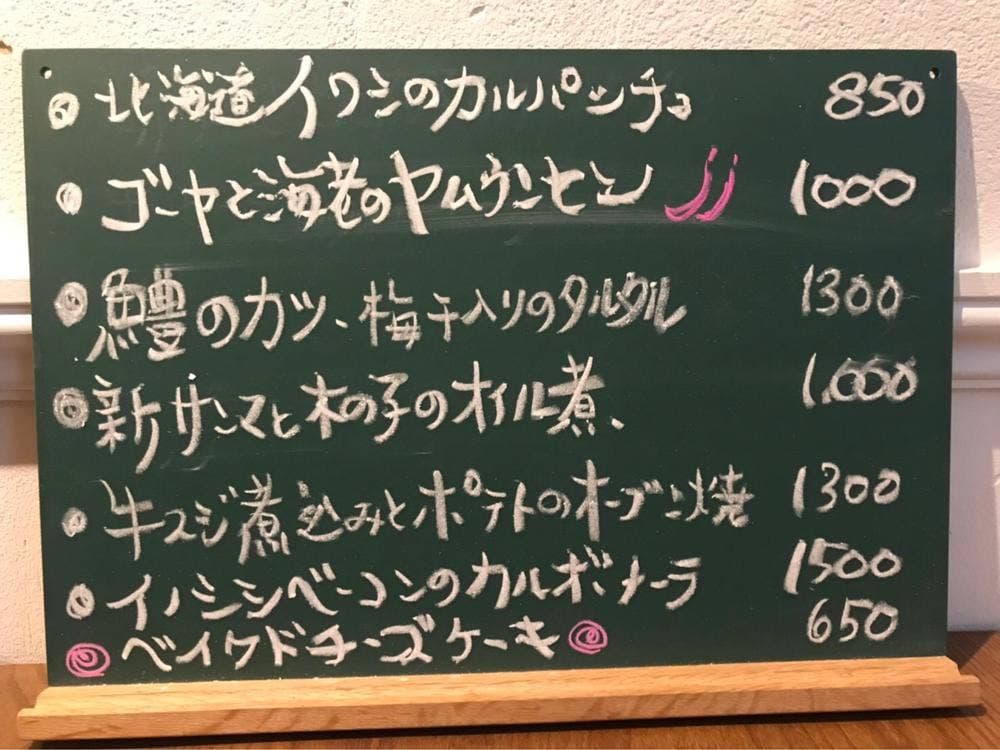 北海道イワシのカルパッチョ 850
ゴーヤと海老のヤムウンセン 1000
鱧のカツ、梅干入りのタルタル 1300
新サンマと木の子のオイル煮、 1,000
牛スジ煮込みとポテトのオーブン焼 1300
イノシシベーコンのカルボナーラ 1500
ベイクドチーズケーキ 650